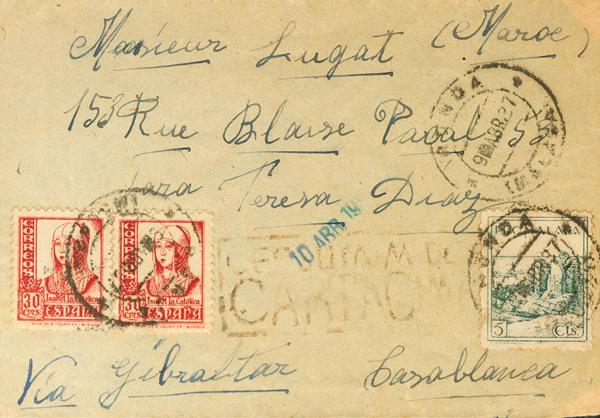 Monsieur Lugat (Maroc)
153 Rue Blaise Pascal 53
Para Teresa Diaz
Via Gibraltar Casablanca
RONDA
9 ABR. 37
(MALAGA)
10 ABR 19
CORREOS
30 CTS
Isabel la Católica
ESPAÑA
CORREOS
30 CTS
Isabel la Católica
ESPAÑA
RONDA
5 Cts